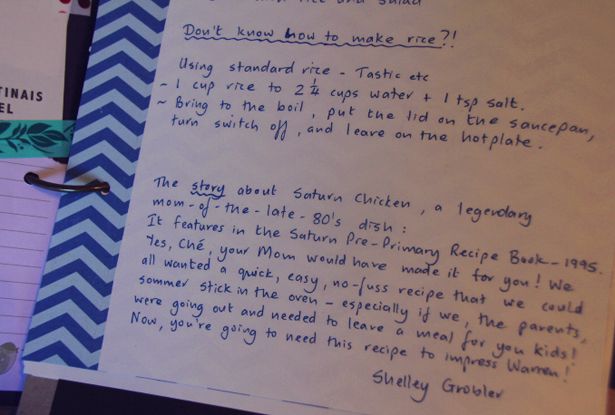 rice and salad
Don't know how to make rice?!
Using standard rice - Tastic etc
- 1 cup rice to 2 1/4 cups water + 1 tsp salt.
~ Bring to the boil, put the lid on the saucepan,
turn switch off, and leave on the hotplate.
The story about Saturn Chicken, a legendary
mom-of-the-late-80's dish:
It features in the Saturn Pre-Primary Recipe Book - 1995.
Yes, Ché, your Mom would have made it for you! We
all wanted a quick, easy, no-fuss recipe that we could
sommer stick in the oven - especially if we, the parents,
were going out and needed to leave a meal for you kids!
Now, you're going to need this recipe to impress Warren!
Shelley Grobler
TINAIS
EL